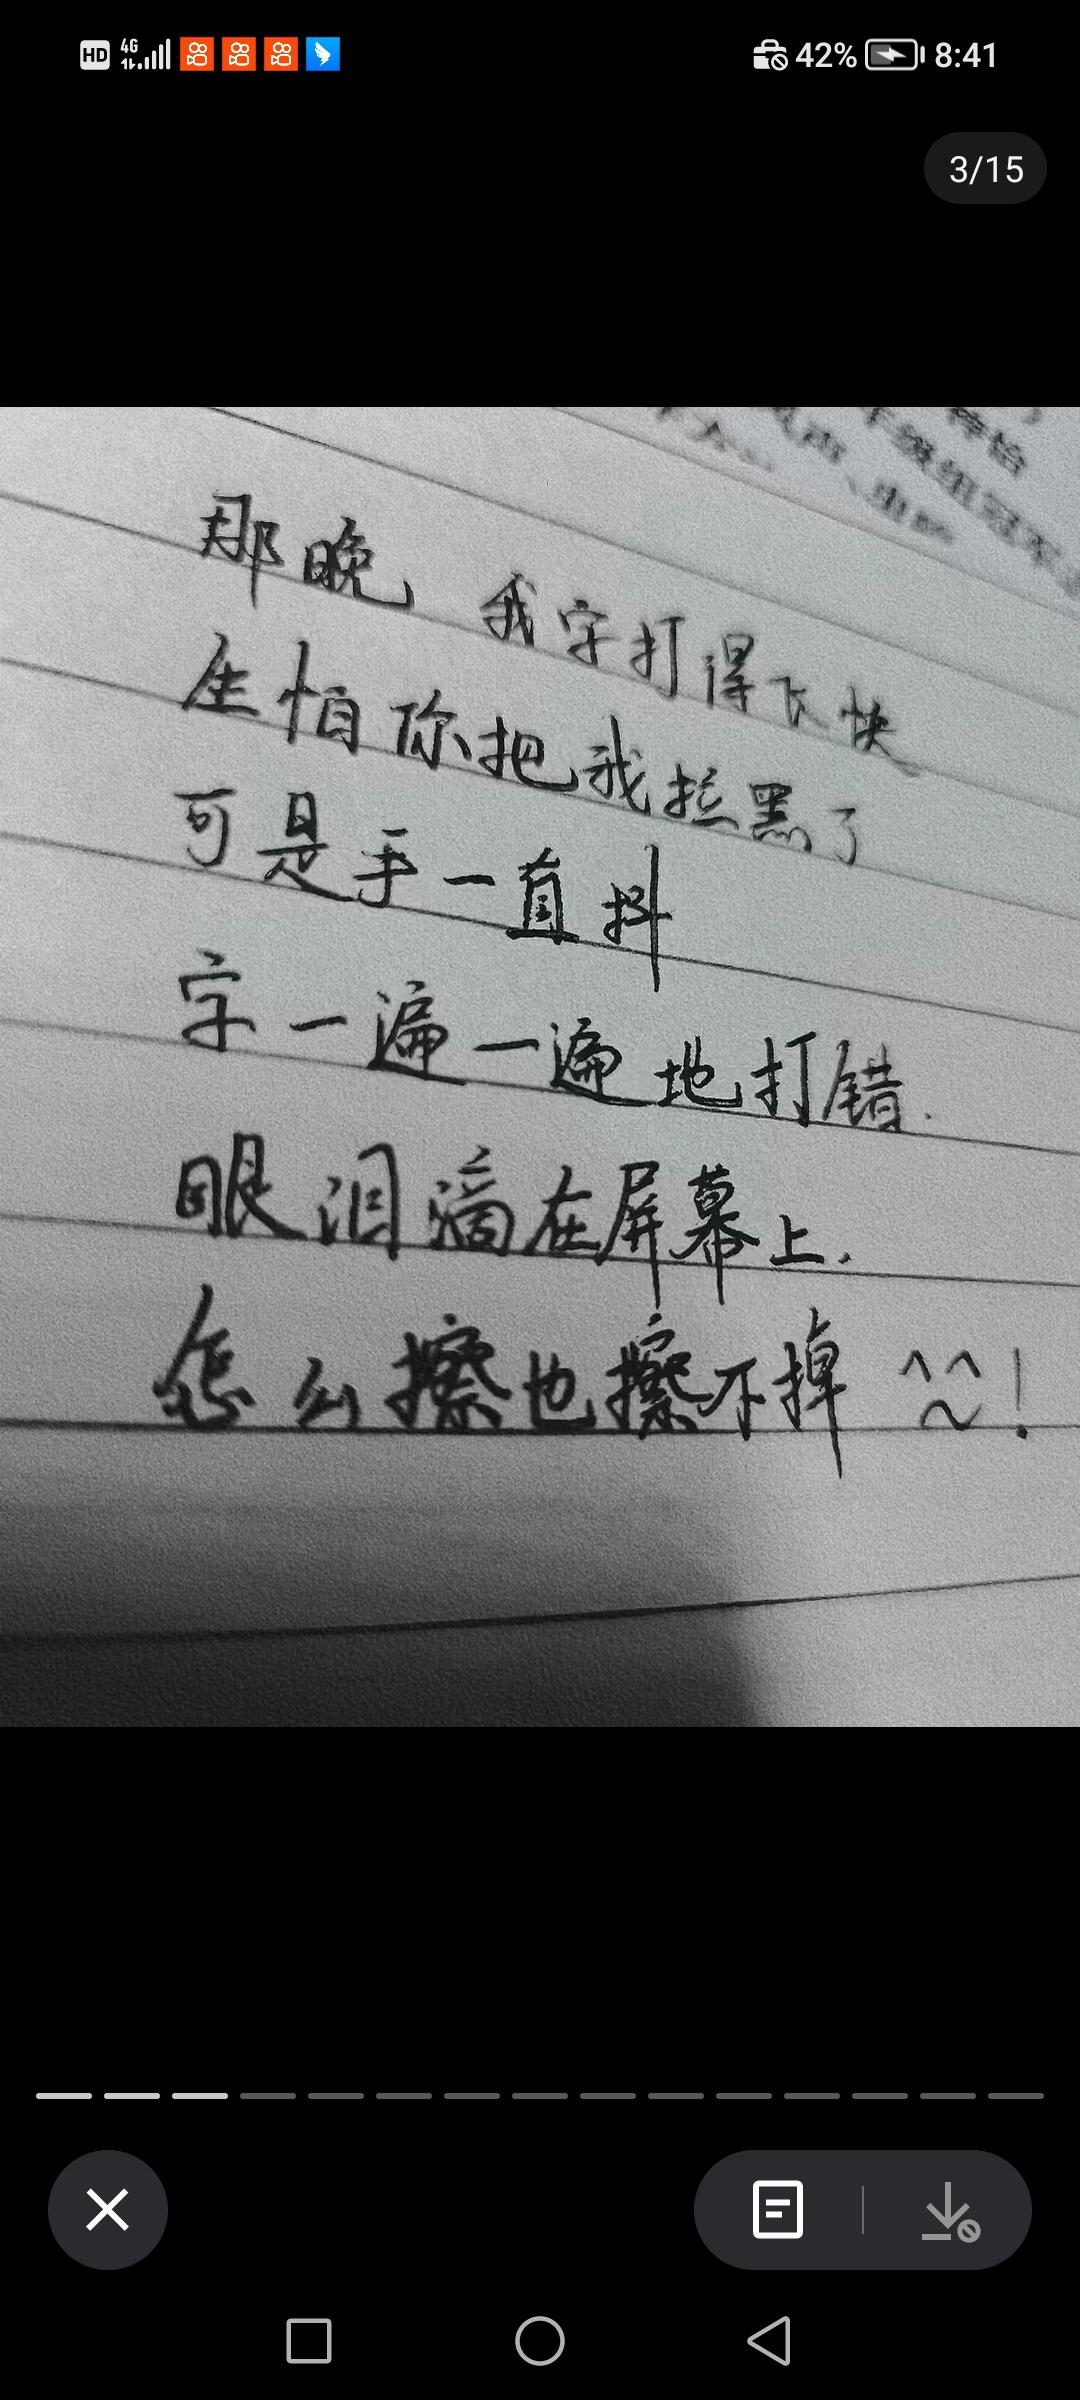 HD 4G 42% 8:41
3/15
那晚 我字打得飞快
生怕你把我拉黑了
可是手一直抖
字一遍一遍地打错.
眼泪滴在屏幕上.
怎么擦也擦不掉 ^~^!